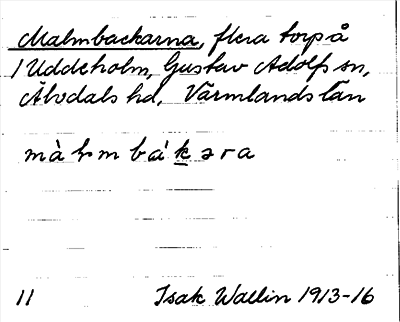 Malmbackarna, flera torp å
/ Uddeholm, Gustav Adolfs sn,
Älvdals hd, Värmlands län
bák̲əra
11 Isak Wallin 1913-16